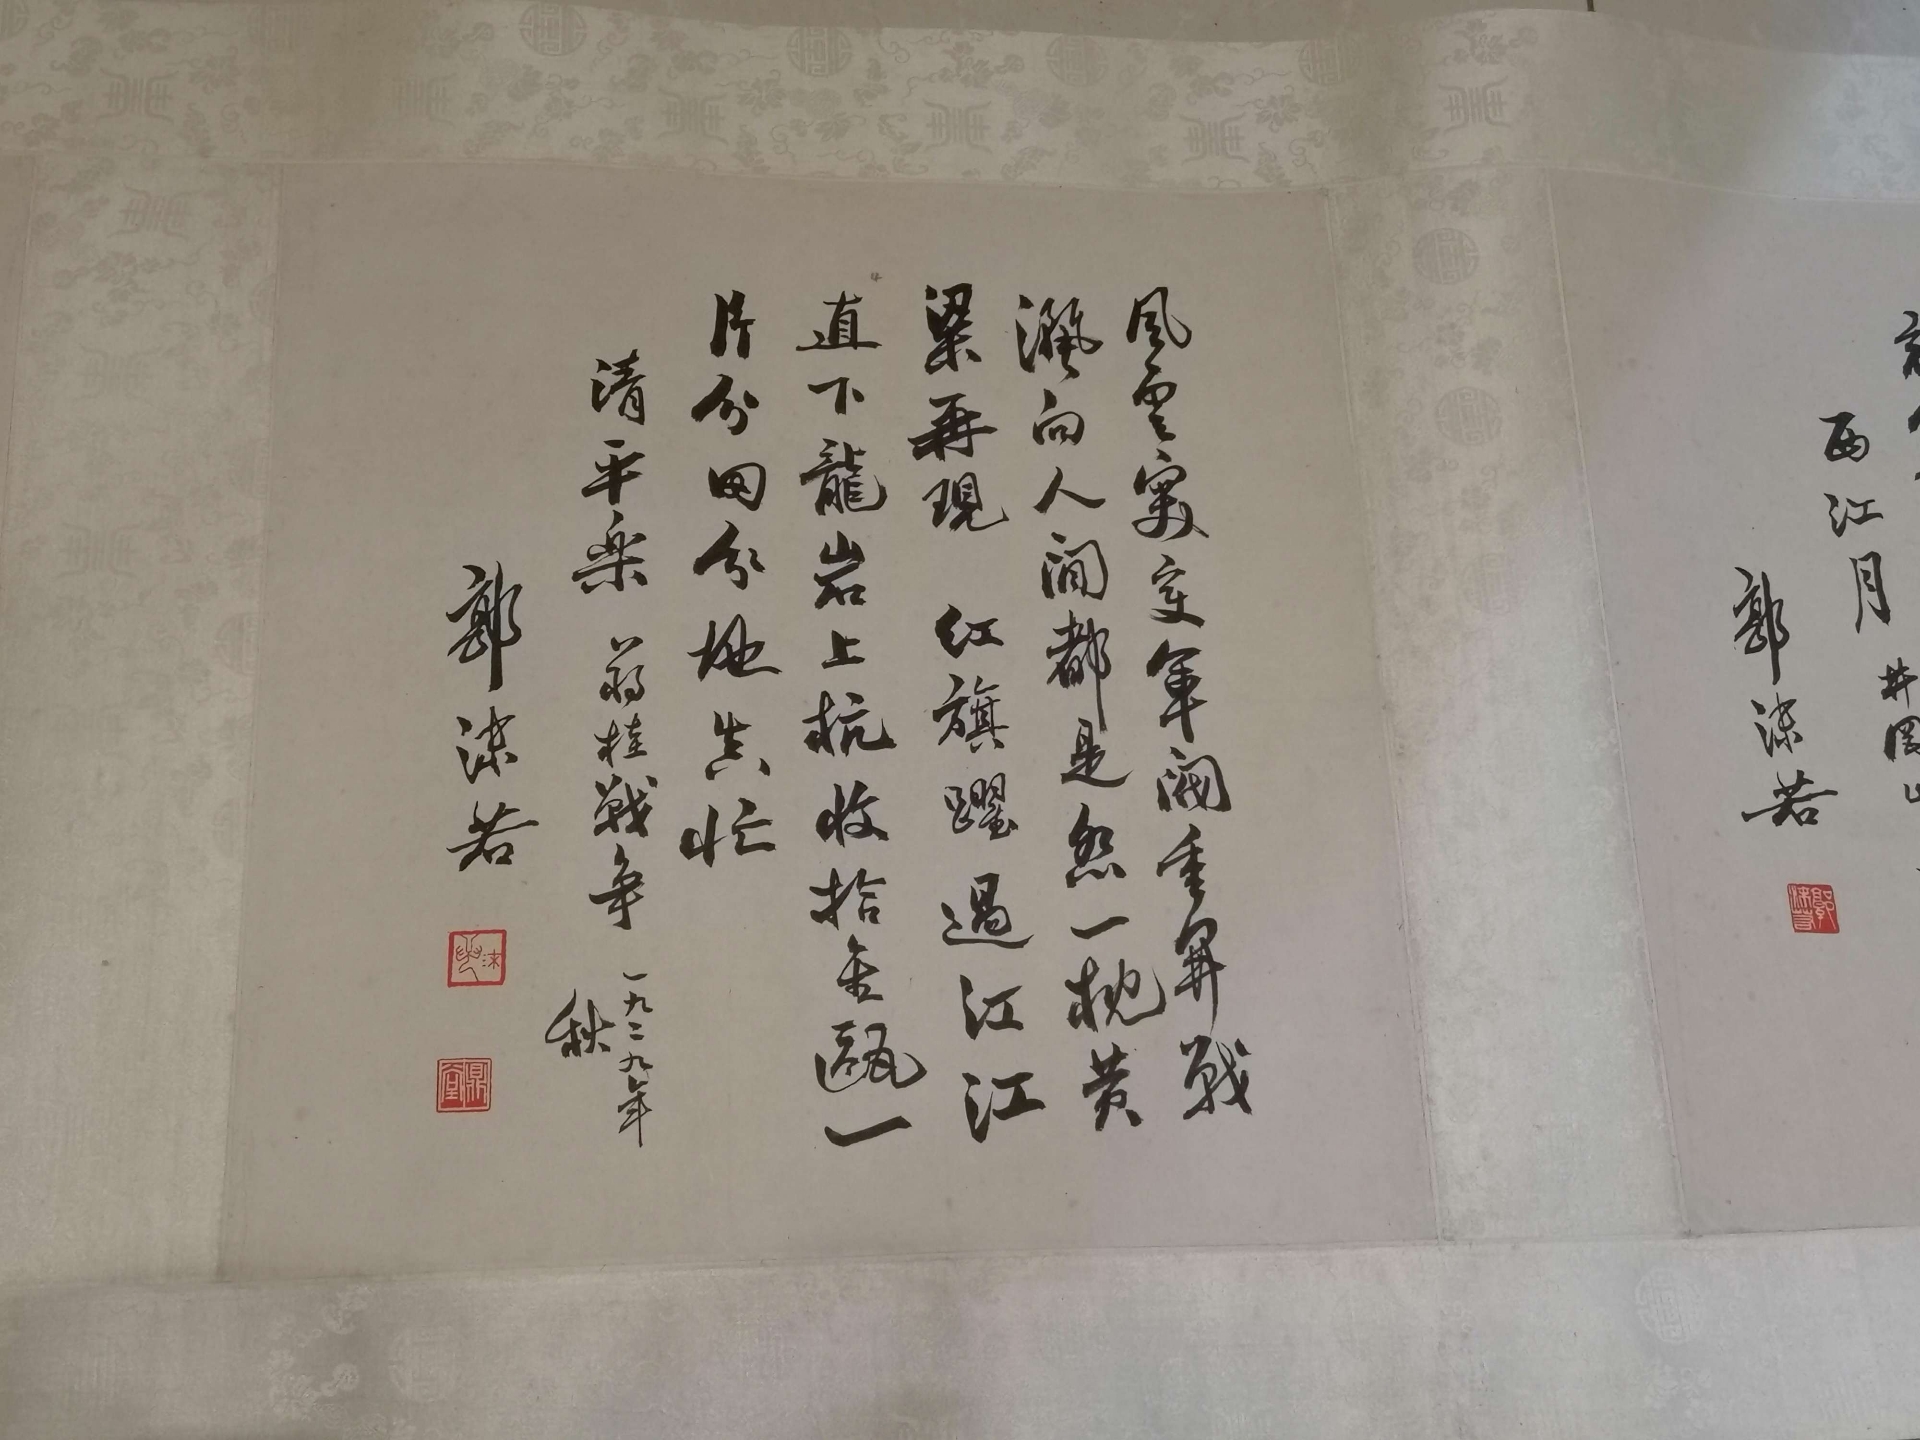 西江月 井岡山
郭沫若
郭沫若
風雲突变軍阀重開戰
灑向人間都是怨一枕黄
粱再現 红旗躍過江江
直下龍岩上杭收拾金甌一
片分田分地真忙
清平楽 蒋桂戰争 一九二九年
秋
郭沫若
鼎堂